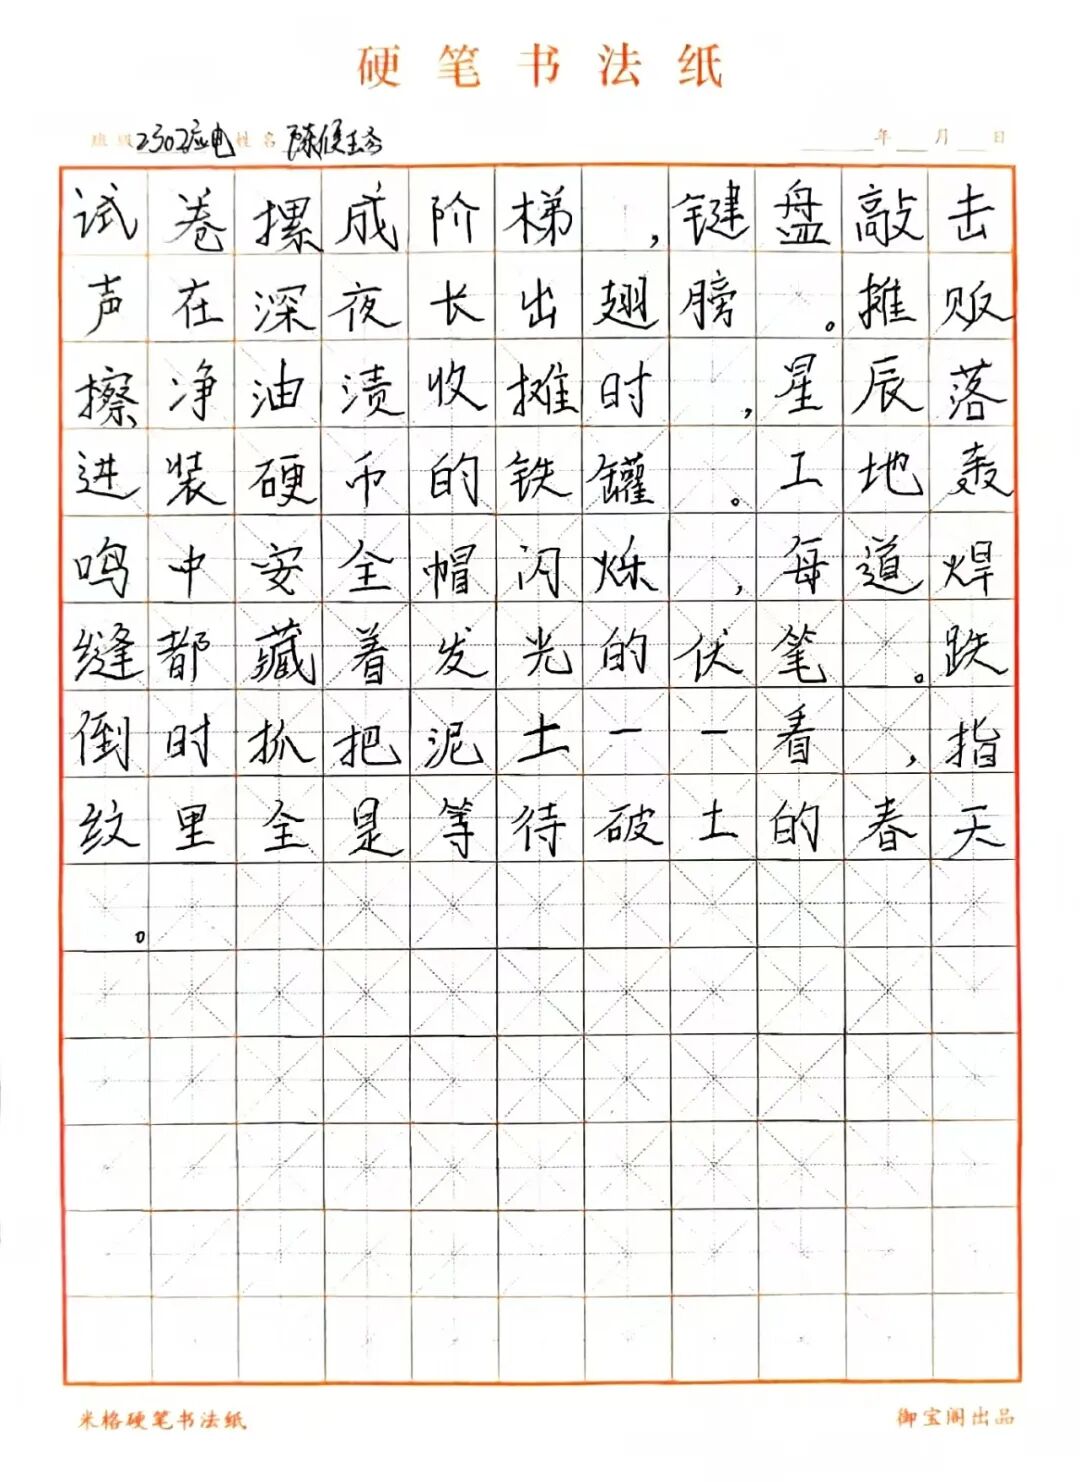 硬笔书法纸
班级2302应电 姓名 陈 年 月 日
试卷摞成阶梯，键盘敲击
声在深夜长出翅膀。摊贩
擦净油渍收摊时，星辰落
进装硬币的铁罐。工地轰
鸣中安全帽闪烁，每道焊
缝都藏着发光的伏笔。跌
倒时抓把泥土一一看，指
纹里全是等待破土的春天
。
米格硬笔书法纸 御宝阁出品